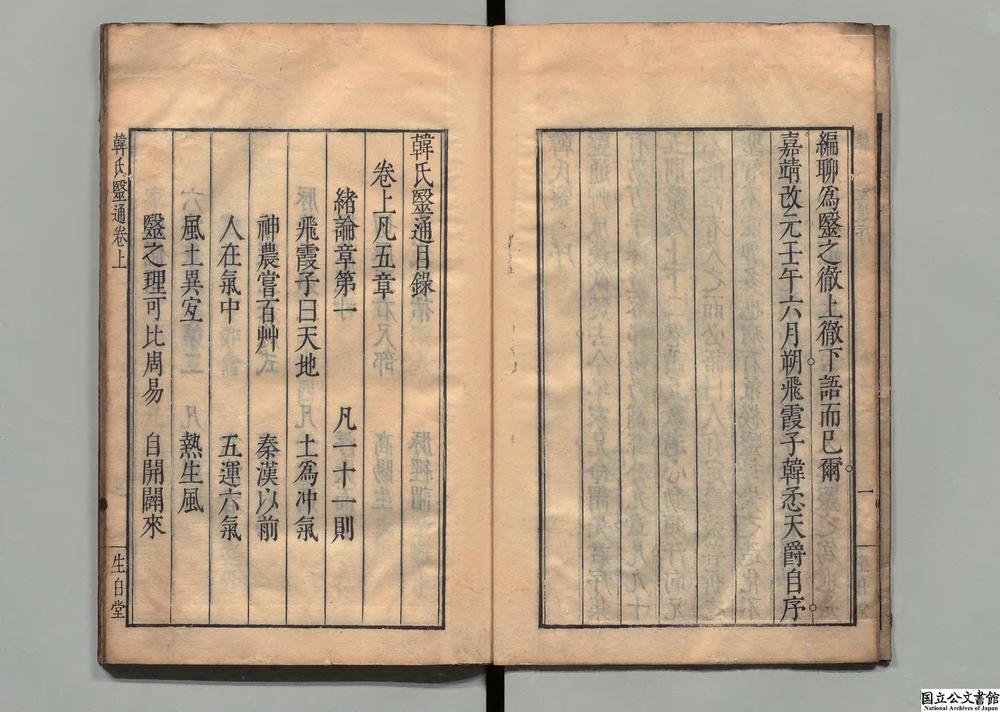 編聊為毉之徹上徹下語而已爾。
嘉靖改元壬午六月朔。飛霞子韓悉天爵自序。
一
韓氏毉通目錄
卷上凡五章
緒論章第一 凡一十一則
飛霞子曰天地 土為冲氣
神農嘗百艸 秦漢以前
人在氣中 五運六氣
風土異宜 熱生風
毉之理可比周易 自開闢來
韓氏毉通卷上
生白堂
国立公文書館
National Archives of Japan